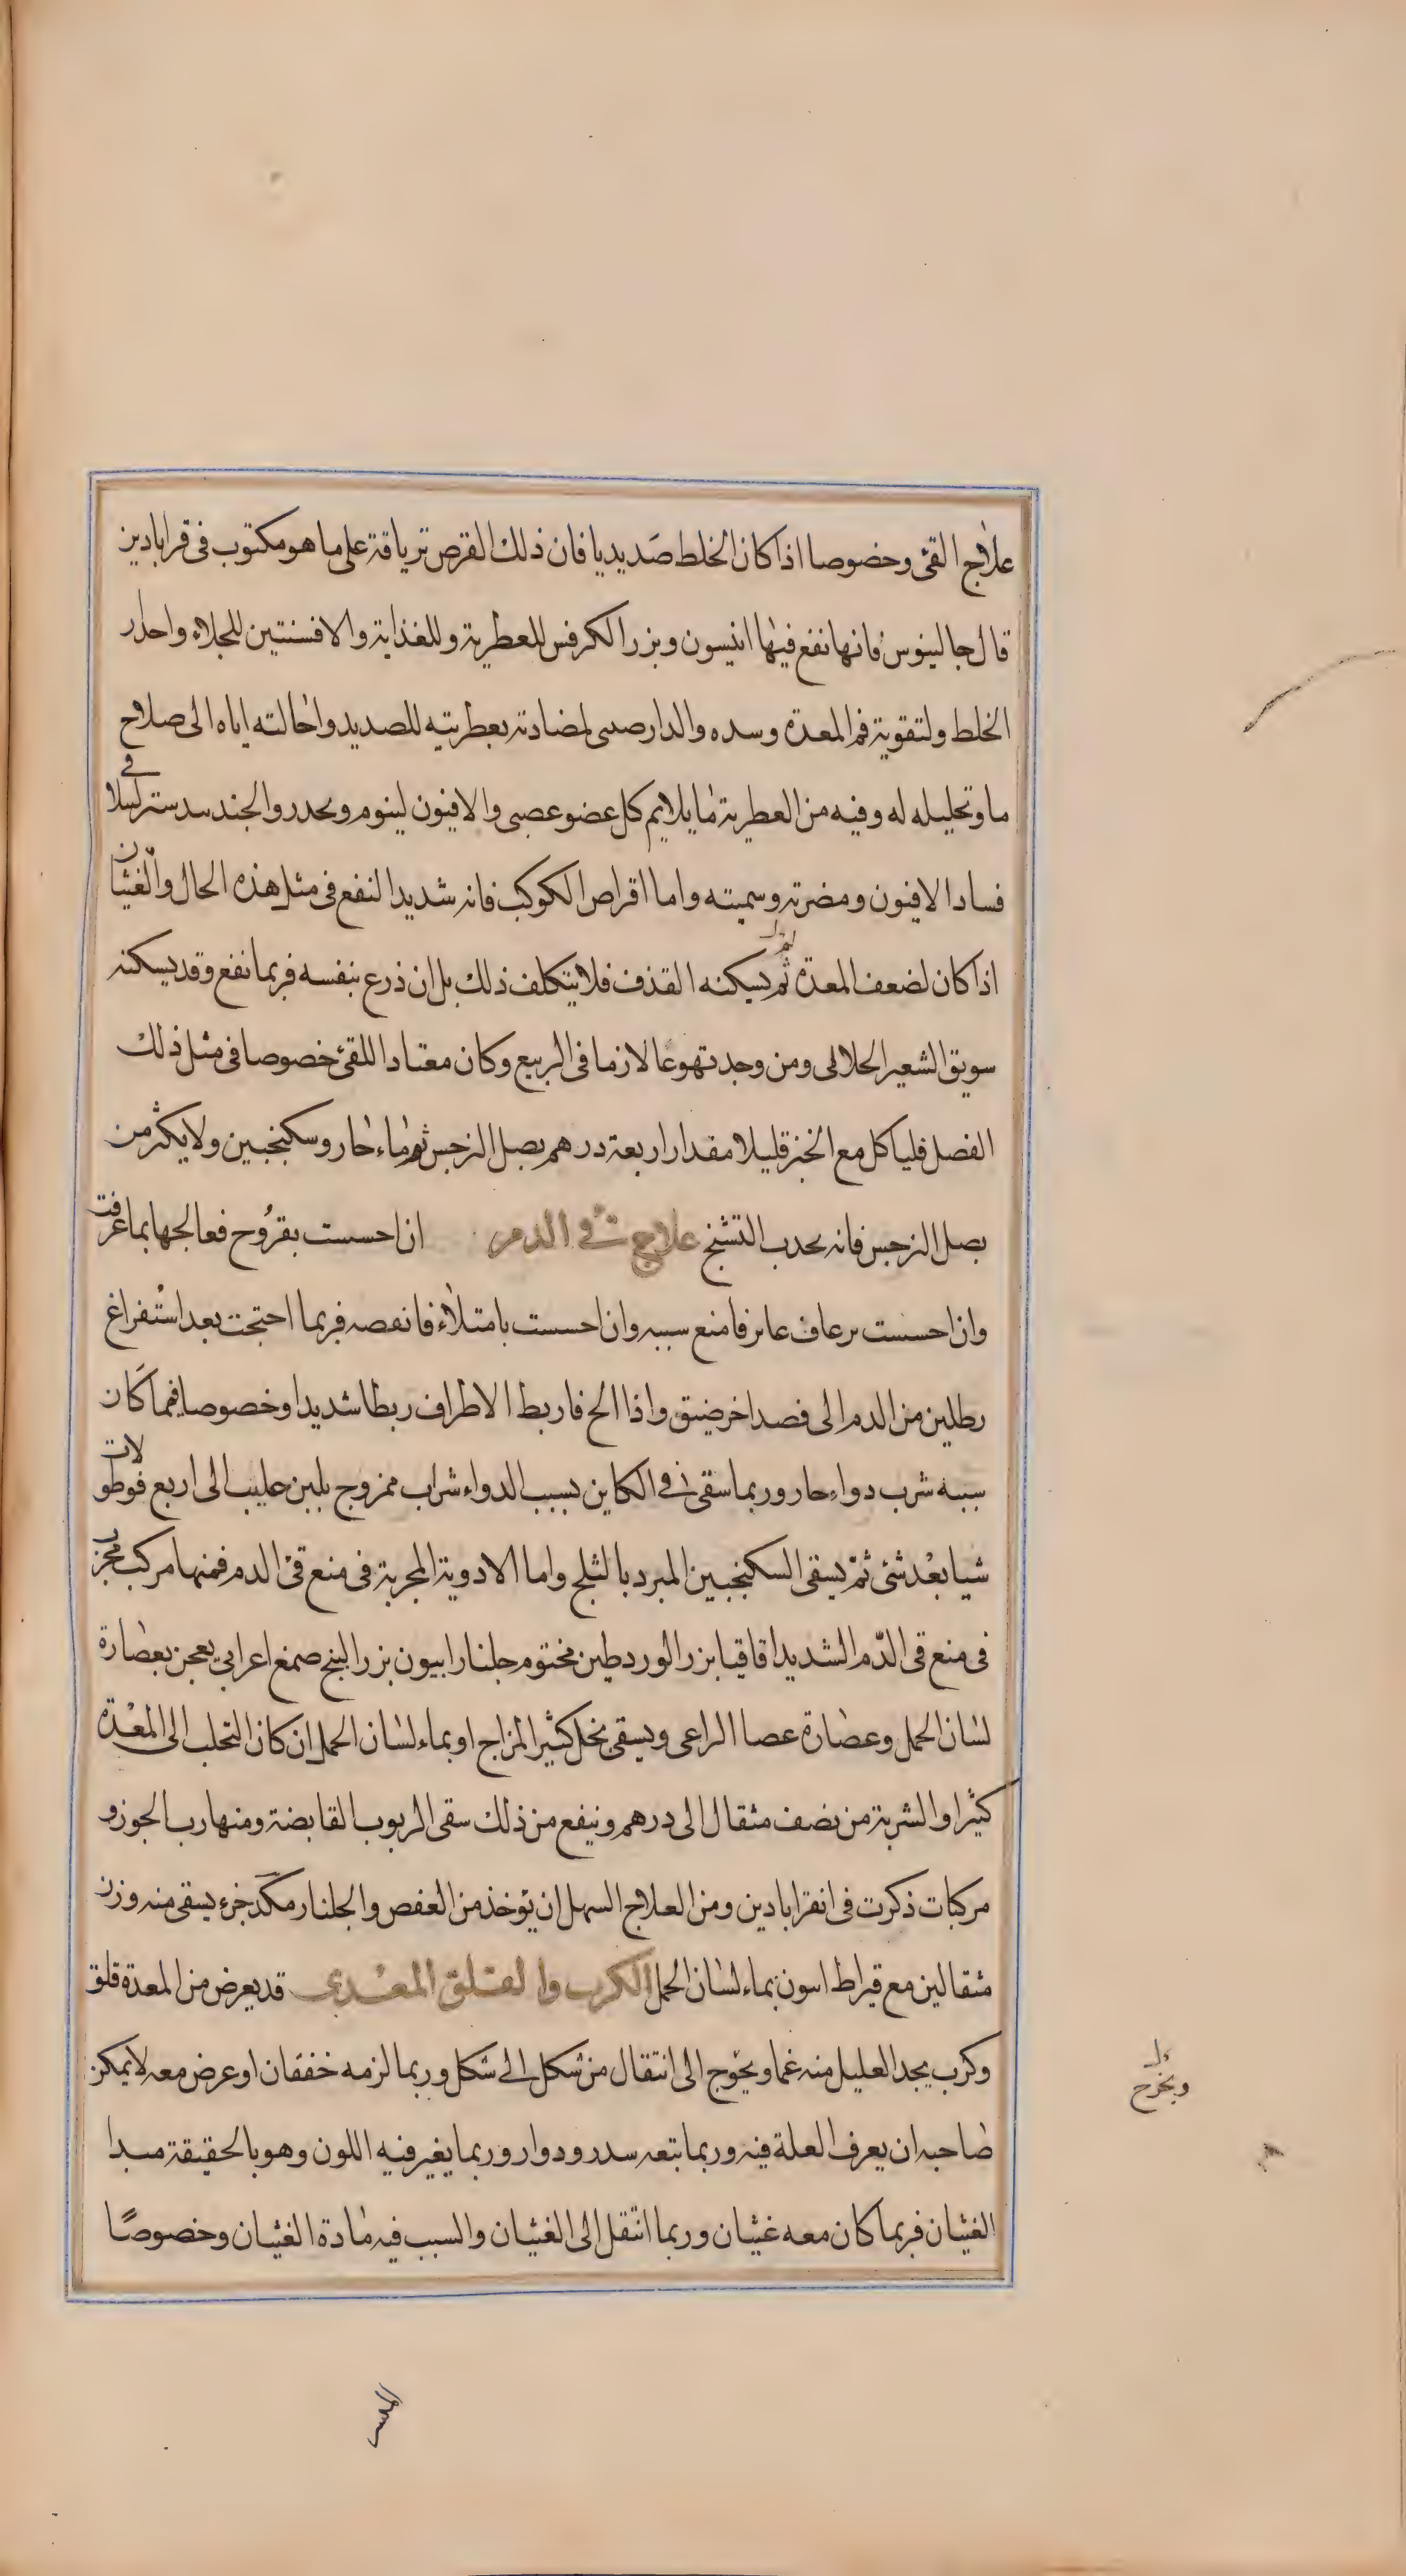 علاج القئ وخصوصا اذا كان الخلط صديديا فان ذلك القرص ترياقة على ما هو مكتوب في قرابادين
قال جالينوس فانها نفع فيها انيسون وبزر الكرفس للعطرية وللغذاية والافسنتين للجلاء واحدار
الخلط ولتقوية فم المعدة وسده والدارصىى لمضادته بعطريته للصديد واحالته اياه الى صلاح
ما وتحليله له وفيه من العطرية ما يلايم كل عضو عصبى والافيون لينوم ويحدر والجندىىدستر ليىلا فى
فسادا لافيون ومضرته وسميته واما اقراص الكوكب فانه شديد النفع فى مثل هذه الحال والغثيان
اذا كان لضعف المعدة ثم يسكنه القذف فلا يتكلف ذلك بل ان ذرع بنفسه فربما نفع وقد يسكنه
سويق الشعير الحلالى ومن وجد تهوعا لازما فى الربيع وكان معتادا اللقئ خصوصا فى مثل ذلك
الفصل فلياكل مع الخبز قليلا مقدار اربعة درهم بصل النرجس ثم ماء حار وسكنجبين ولا يكثر من
بصل النرجس فانه يحدب التشنج علاج قئ الدم ان احسست بقروح فعالجها بما عرفت
وان احسست برعاف عابر فامنع سببه وان احسست بامتلاء فانفصه فربما احتجت بعد استفراغ
رطلين من الدم الى فصد اخر ضيق واذا الح فاربط الاطراف ربطا شديدا وخصوصا فيما كان
سببه شرب دواء حار وربما سقى فى الكاين بسبب الدواء شراب ممزوج بلبن حليب الى اربع قوطولات
شيا بعد شئ ثم يسقى السكنجبين المبرد بالثلج واما الادوية المجربة فى منع قئ الدم فمنها مركب مجرب
فى منع قى الدم الشديد اقاقيا بزر الورد طين مختوم جلنار ابيون بزر البنج صمغ اعرابي يعجن بعصارة
لسان الحمل وعصارة عصا الراعى ويسقى بخل كثير المزاج او بماء لسان الحمل ان كان التحلب الى المعدة
كثيرا والشربة من نصف مثقال الى درهم وينفع من ذلك سقى الربوب القابضة ومنها رب الجوز و
مركبات ذكرت فى انقراباذين ومن العلاج السهل ان يؤخذ من العفص والجلنار مكد جزء يسقى منه وزن
مثقالين مع قيراط اىىون بماء لسان الحمل الكرب والقلق المعدى قد يعرض من المعدة قلق
وكرب يجد العليل منه غما ويحوج الى انتقال من شكل الى شكل وربما لزمه خفقان او عرض معه لا يمكن
صاحبه ان يعرف العلة فيه وربما تبعه سدر ودوار وربما يغير فيه اللون وهو بالحقيقة مبدا
الغثيان فربما كان معه غثيان وربما انتقل الى الغثيان والسبب فيه مادة الغثيان وخصوصًا
ويخرج